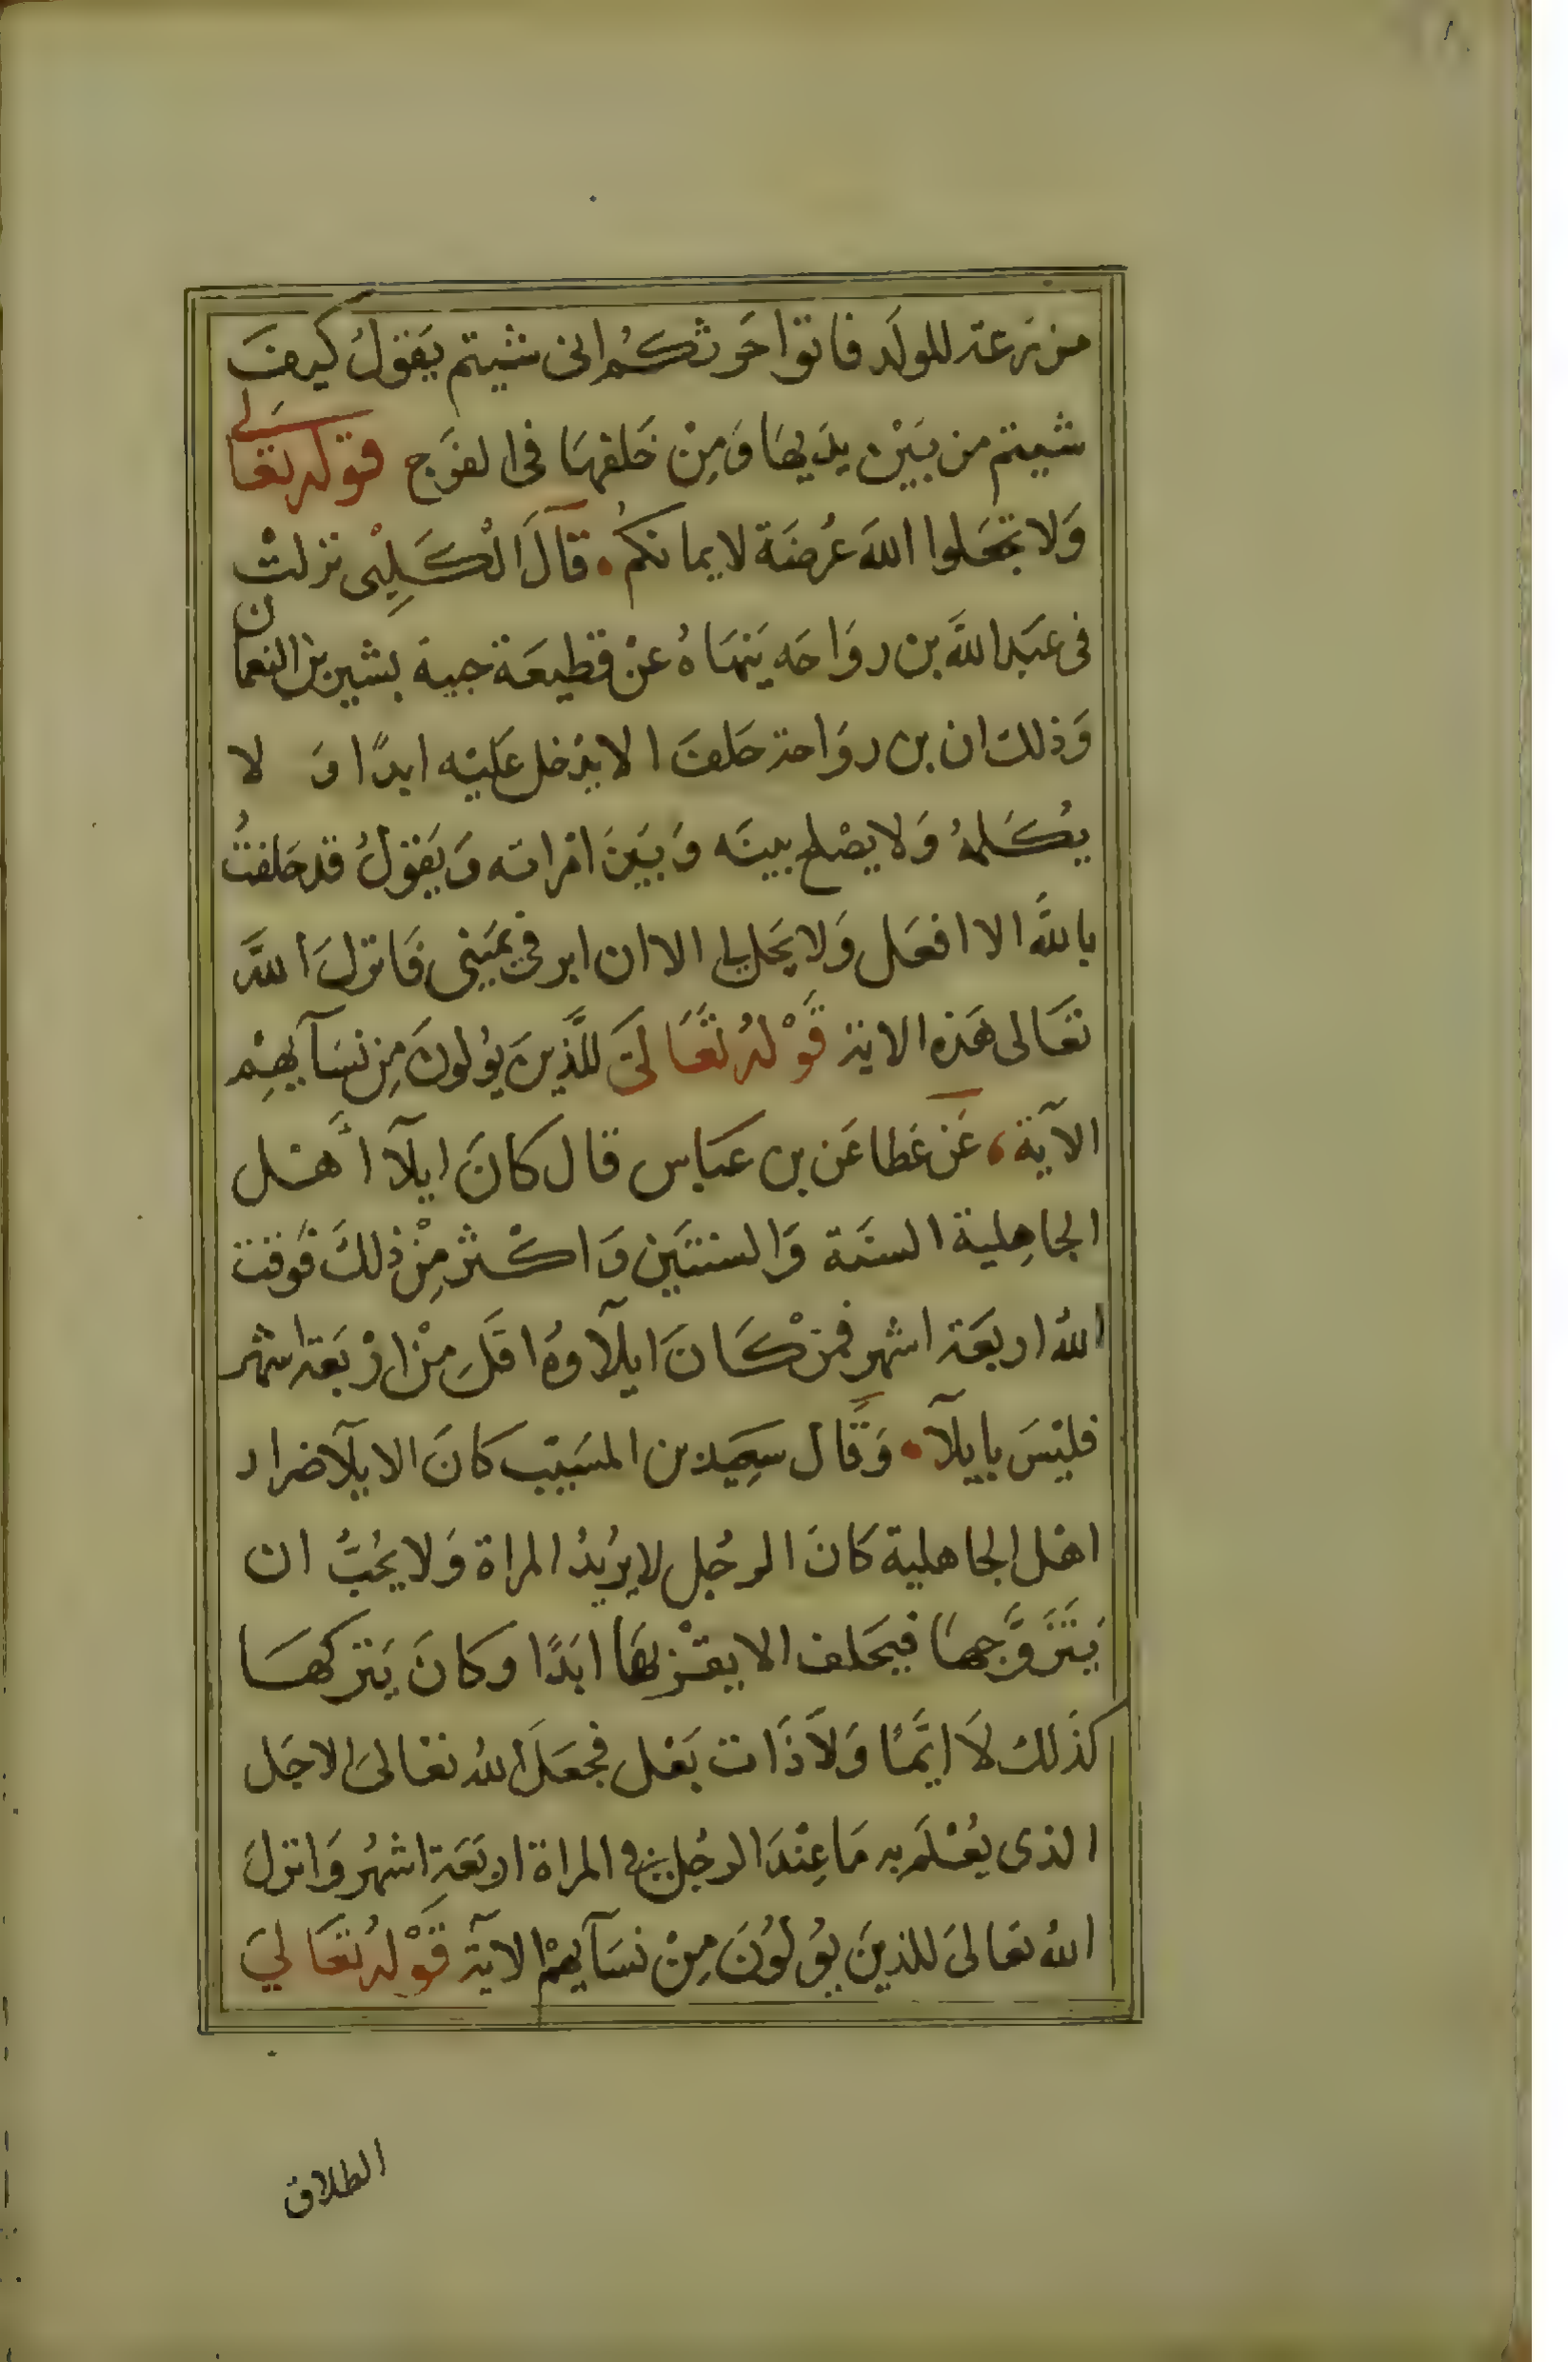 من مزرعة للولد فاتوا حَرثكُم انى شيتم يَقولُ كيف
شيتم من بَيْن يدَيهَا وَمِنْ خَلفهَا فى الفرَج قوله تعالى
وَلا تجعَلوا اللهَ عُرضَة لايمانكمُ قالَ الْكَلِبْى نزلتْ
فى عَبد اللهَ بن روَاحَه يَنهَاهُ عنْ قطيعَة جبية بشير بن النعمان
وَذلك ان بن روَاحة حَلفَ الا يدْخل عَليْه ابدًا وَ لا
يكَلمهُ وَلا يصْلح بينَه وَبَينَ امْراته وَيَقولُ قد حَلفتُ
بالله الا افعَل وَلا يَحل لى الا ان ابر فى يمَينى فَانزلَ اللهَ
تعَالى هَذه الاية قَوْلهُ تعَالَىَ للَّذينَ يؤلونَ مِن نسَآيهِمْ
الآية، عَن عَطا عَن بن عَباس قال كانَ ايلآ أهْل
الجاهِلية السنَة وَالسنتَين وَاكْثر مِنْ ذلكَ فوَقت
اللهُ اربعَة اشهر فمنْ كَانَ ايلآوهُ اقلَ مِنْ ارْبعَة اشهر
فليْسَ بايلآ وَقَال سَعِيد بن المسَيْب كانَ الايلآ ضرار
اهْل الجاهلية كانَ الرجُل لا يرُيدُ المراة وَلا يحُبُّ ان
يَتَزَوَّجهَا فيحَلف الا يقْربهَا ابَدًا وكانَ يَتركهَا
كذَلك لاَ ايّمًا وَلاَ ذَات بَعْل فجعَلَ اللهُ تعَالىَ الاجَل
الذى يُعْلَم به مَا عِنْدَ الرجُل فى المراة اربَعَة اشهُر وَانزلَ
اللهُ تعَالىَ للذينَ يؤلوُنَ مِنْ نسَآيهمْ الآية قوْلهُ تعَالىَ
الطلاق